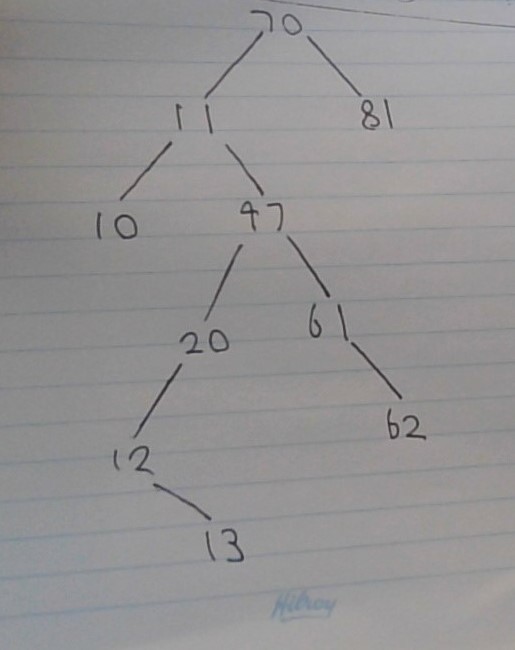 70
11 81
10 47
20 61
12 62
13
Hilroy